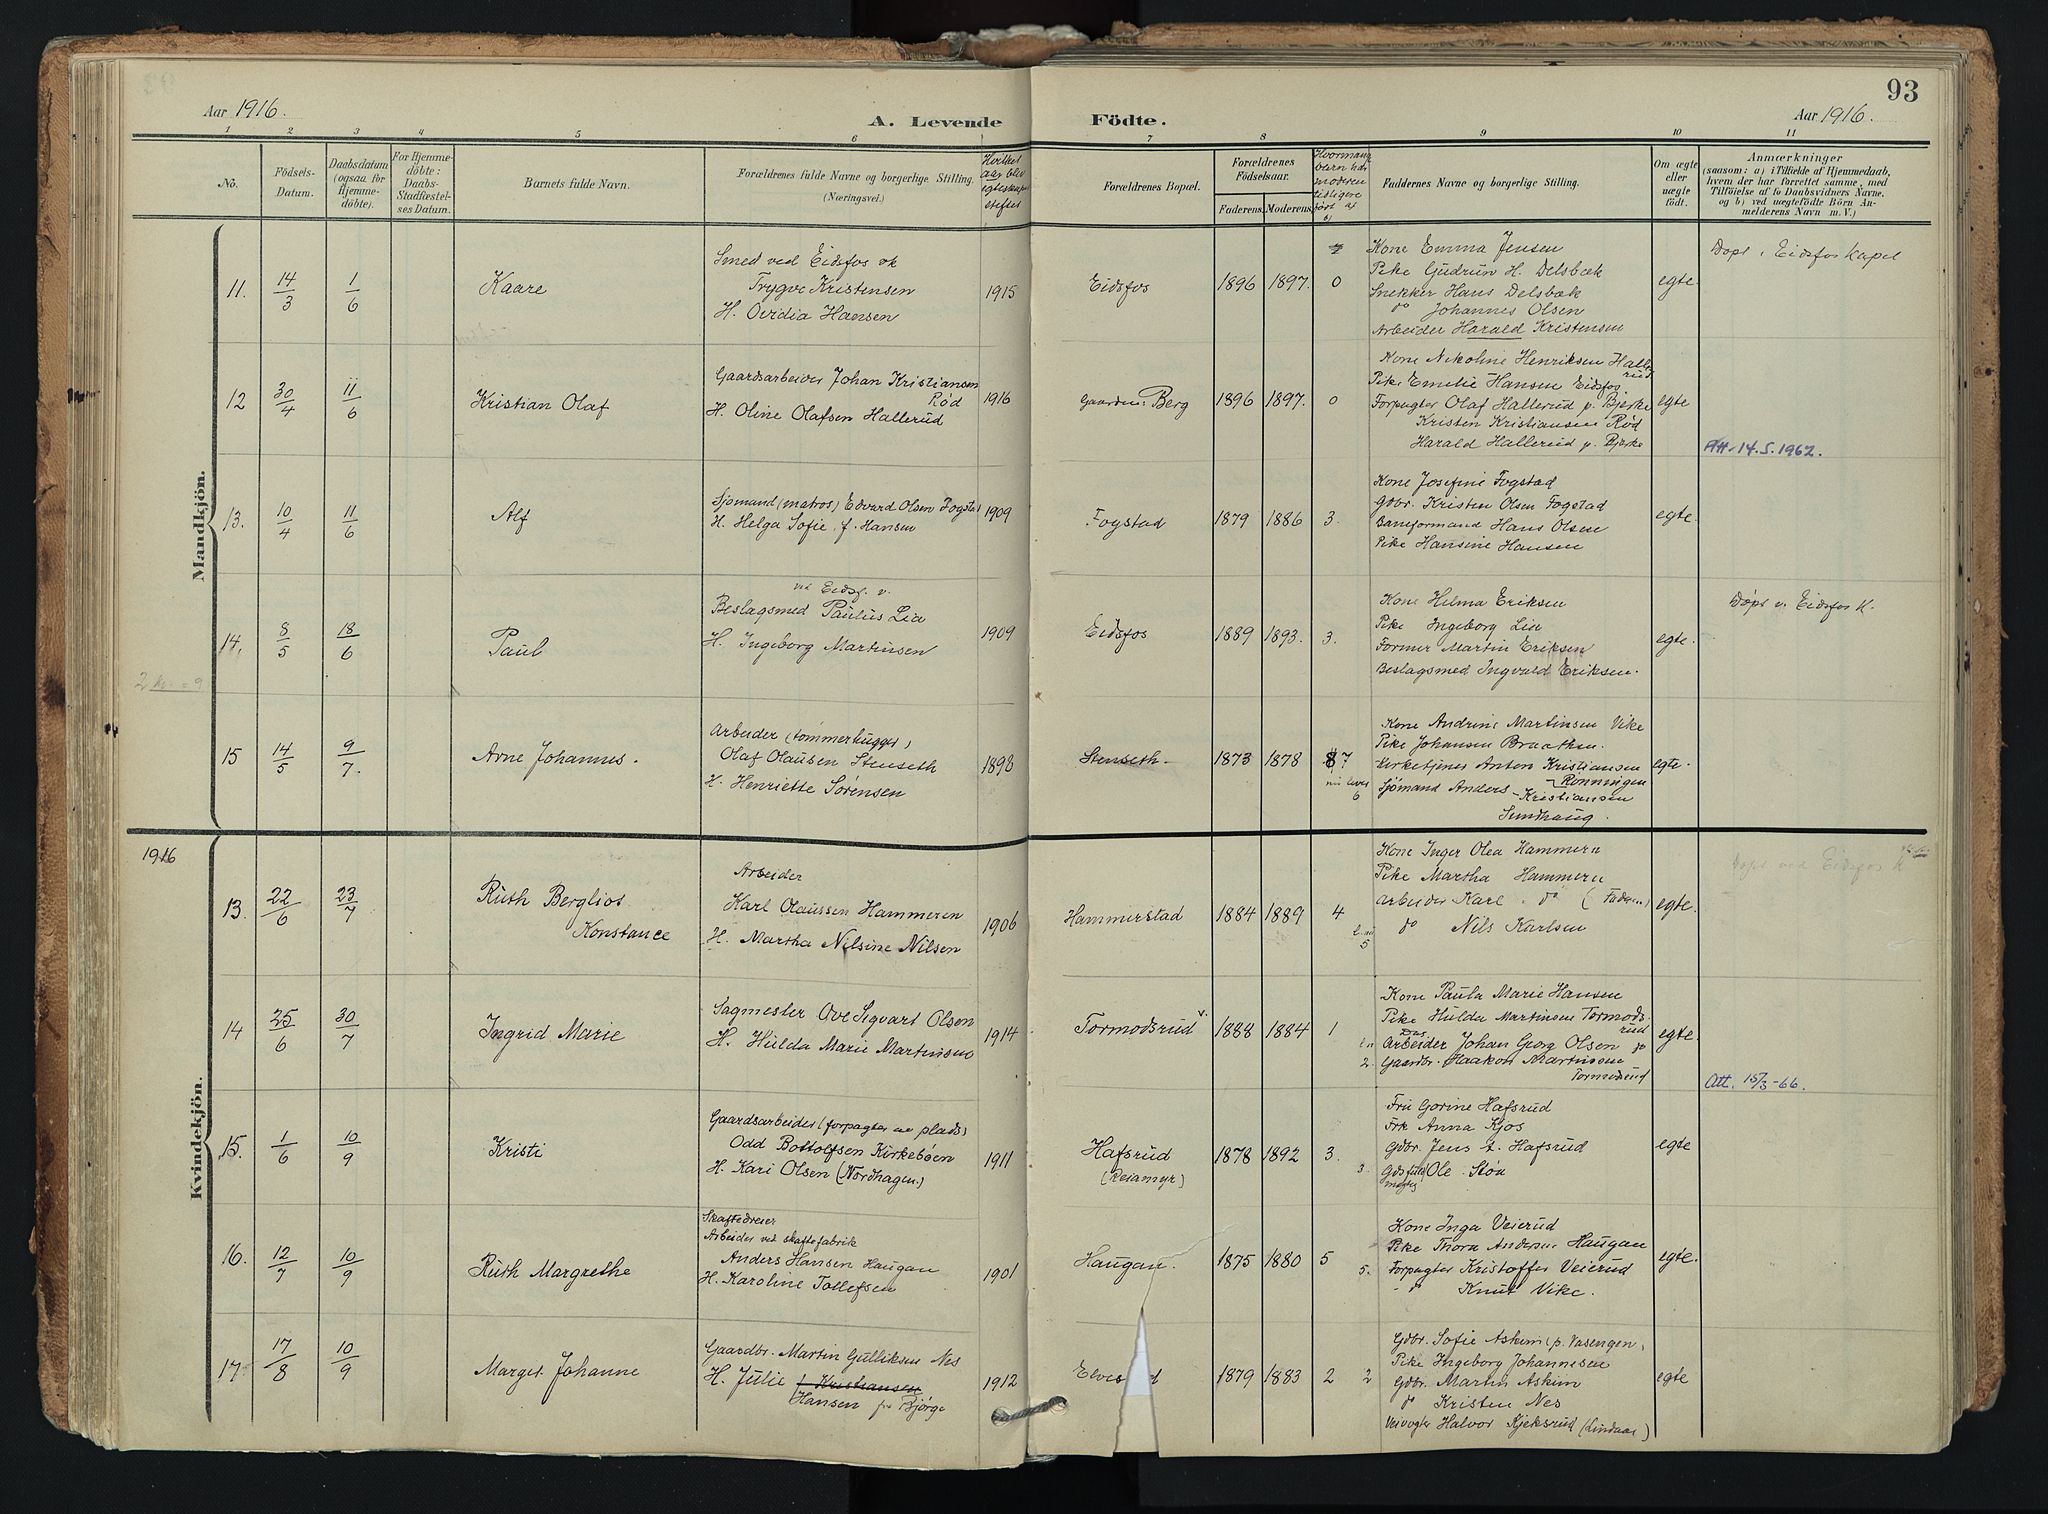 93
Aar 1916.
A. Levende Födte.
Aar 1916.
1 2 3 4 5 6 7 8 9 10 11
No.
Födsels-
Datum.
Daabsdatum
(ogsaa for
Hjemme-
döbte).
For Hjemme-
döbte:
Daabs-
Stadfæstel-
ses Datum.
Barnets fulde Navn.
Forældrenes fulde Navne og borgerlige Stilling.
(Næringsvei.)
Hvilket
aar blev
egteskapet
stiftet
Forældrenes Bopæl.
Forældrenes
Födselsaar.
Faderens. Moderens.
Hvormange
børn har
moderen
tidligere
født
Faddernes Navne og borgerlige Stilling.
Om ægte
eller
uægte
födt.
Anmærkninger
(saasom: a) i Tilfælde af Hjemmedaab,
hvem der har forrettet samme, med
Tilföielse af to Daabsvidners Navne,
og b) ved uægtefödte Börn An-
melderens Navn m. V.)
Mandkjön.
11. 14/3 1/6 Kaare
Smed ved Eidsfos vk
Trygve Kristensen
H. Ovidia Hansen
1915 Eidsfos 1896 1897. 0
Kone Emma Jensen
Pike Gudrun H. Delsbæk
Snekker Hans Delsbæk
do Johannes Olsen
Arbeider Harald Kristensen
egte.
Døpt i Eidsfos Kapel
12 30/4 11/6 Kristian Olaf
Gaardsarbeider Johan Kristiansen
Rød
H. Oline Olafsen Hallerud
1916 Gaarden: Berg 1896 1897. 0
Kone Nikoline Henriksen Halle
rud
Pike Emelie Hansen Eidsfos
Forpagter Olaf Hallerud p. Bjerke
Kristen Kristiansen Rød
Harald Hallerud p. Bjerke
egte
Att. 14.5.1962.
13. 10/4 11/6 Alf
Sjømand (matros) Edvard Olsen Fogstad
H. Helga Sofie f. Hansen
1909 Fogstad 1879 1886 3.
Kone Josefine Fogstad
Gdbr. Kristen Olsen Fogstad
Baneformand Hans Olsen
Pike Hansine Hansen
egte.
14. 8/5 18/6 Paul
ved Eidsf. v.
Beslagsmed Paulus Lia
H. Ingeborg Martinsen
1909 Eidsfos 1889 1893. 3.
Kone Hilma Eriksen
Pike Ingeborg Lia
Former Martin Eriksen
Beslagsmed Ingvald Eriksen.
egte.
Døpt v. Eidsfos K.
15 14/5 9/7. Arne Johannes.
Arbeider (tømmerhugger)
Olaf Olausen Stenseth
H. Henriette Sørensen
1898 Stenseth. 1873 1878 7
nu lever
6
Kone Andrine Martinsen Vike
Pike Johansen Braathen.
Kirketjener Anton Kristiansen
Rønningen
Sjømand Anders Kristiansen
Sundhaug.
egte.
1916
Kvindekjön.
13. 22/6 23/7 Ruth Bergliot
Konstance
Arbeider
Karl Olaussen Hammeren
H. Martha Nilsine Nilsen
1906 Hammerstad 1884 1889 4
5
Kone Inger Olea Hammern
Pike Martha Hammern
Arbeider Karl do (Faderen)
do Nils Karlsen
egte.
Døpt ved Eidsfos K
14 25/6 30/7 Ingrid Marie
Sagmester Ove Sigvart Olsen
H. Hulda Marie Martinsen
1914 Tormodsrud v. 1888 1884 1
2.
Kone Paula Marie Hansen
Pike Hulda Martinsen Tormods-
rud
Arbeider Johan Georg Olsen do
Gaardbr. Haakon Martinsen
Tormodsrud
egte.
Att. 15/3-66.
15. 1/6 10/9 Kristi
Gaardsarbeider (forpagter av plads)
Odd Bottolfsen Kirkebøen
H. Kari Olsen (Nordhagen.)
1911 Hafsrud
(Reiamyr)
1878 1892 3.
3.
Fru Gorine Hafsrud
Frk Anna Kjos
Gdbr. Jens A. Hafsrud
Gdsfuld
mægtig Ole Støa
egte
16. 12/7 10/9 Ruth Margrethe
Skaftedreier
Arbeider ved skaftefabrik
Anders Hansen Haugan
H. Karoline Tollefsen
1901 Haugan. 1875 1880 5
5.
Kone Inga Veierud
Pike Thora Andersen Haugan
Forpagter Kristoffer Veierud
do Knut Vike.
egte.
17. 17/8 10/9 Margit Johanne
Gaardbr. Martin Gulliksen Nes
H. Julie f. Kristiansen
Hansen fra Bjørge
1912 1879 1883 2 2
Gdbr. Sofie Askim (p. Vasengen)
Pike Ingeborg Johannesen
Gdbr. Martin Askim
do Kristen Nes
Veivogter Halvor Kjeksrud (Lindaas)
egte